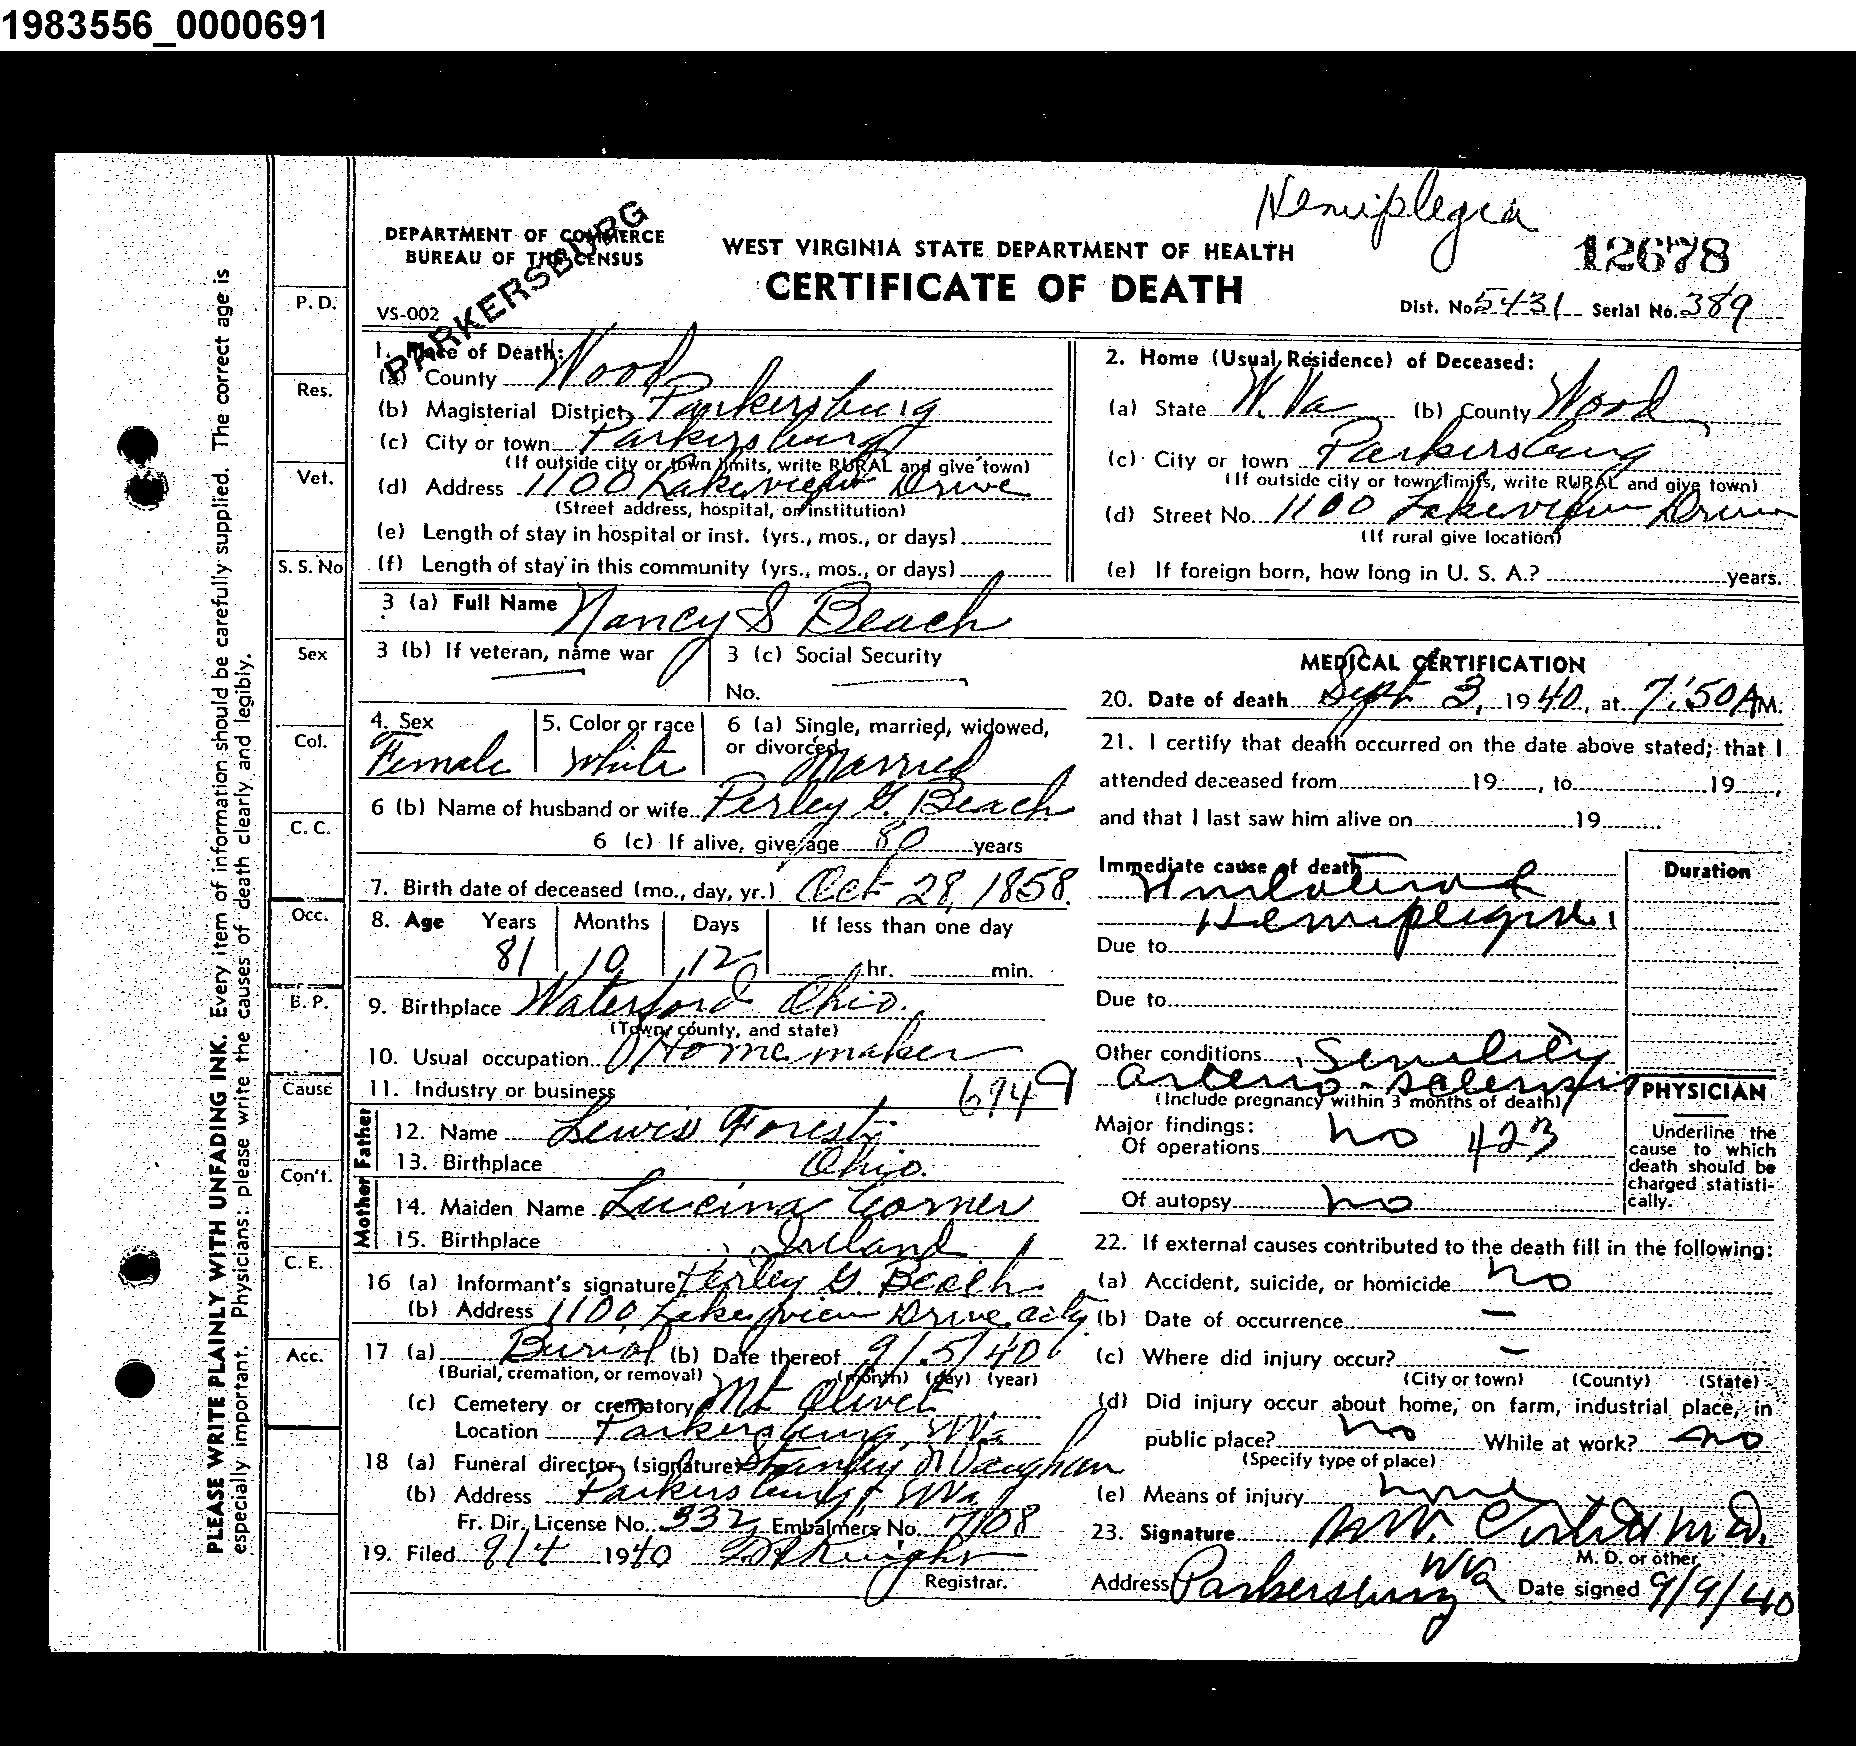 1983556_0000691
Hemiplegia
PARKERSBURG
DEPARTMENT OF COMMERCE
BUREAU OF THE CENSUS
WEST VIRGINIA STATE DEPARTMENT OF HEALTH
CERTIFICATE OF DEATH
12678
VS-002
Dist. No. 5431 Serial No. 389
PLEASE WRITE PLAINLY WITH UNFADING INK. Every item of information should be carefully supplied. The correct age is
especially important. Physicians: please write the causes of death clearly and legibly.
P. D.
Res.
Vet.
S. S. No
Sex
Col.
C. C.
Occ.
B. P.
Cause
Con't.
C. E.
Acc.
1. Place of Death:
(a) County Wood
(b) Magisterial District Parkersburg
(c) City or town Parkersburg
(If outside city or town limits, write RURAL and give town)
(d) Address 1100 Lakeview Drive
(Street address, hospital, or institution)
(e) Length of stay in hospital or inst. (yrs., mos., or days)
(f) Length of stay in this community (yrs., mos., or days)
2. Home (Usual Residence) of Deceased:
(a) State W. Va (b) County Wood
(c) City or town Parkersburg
(If outside city or town limits, write RURAL and give town)
(d) Street No. 1100 Lakeview Drive
(If rural give location)
(e) If foreign born, how long in U. S. A.? years.
3 (a) Full Name Nancy S Beach
3 (b) If veteran, name war
3 (c) Social Security
No.
4. Sex
Female
5. Color or race
White
6 (a) Single, married, widowed,
or divorced
Married
6 (b) Name of husband or wife Perley G. Beach
6 (c) If alive, give age 80 years
7. Birth date of deceased (mo., day, yr.) Oct 28, 1858.
8. Age Years Months Days If less than one day
81 10 12 hr. min.
9. Birthplace Waterford Ohio.
(Town, county, and state)
10. Usual occupation Homemaker
11. Industry or business 6949
Father
12. Name Lewis Forest
13. Birthplace Ohio.
Mother
14. Maiden Name Lucina Corner
15. Birthplace Ireland
16 (a) Informant's signature Perley G. Beach
(b) Address 1100 Lakeview Drive, City
17 (a) Burial (b) Date thereof 9/5/40
(Burial, cremation, or removal) (month) (day) (year)
(c) Cemetery or crematory Mt Olivet
Location Parkersburg, WVa
18 (a) Funeral director (signature) Stanley Vaughan
(b) Address Parkersburg, WVa
Fr. Dir. License No. 332 Embalmers No. 7108
19. Filed 9/4 1940 Knight
Registrar.
MEDICAL CERTIFICATION
20. Date of death Sept 3, 1940, at 7:50 A M.
21. I certify that death occurred on the date above stated; that I
attended deceased from 19 , to 19 ,
and that I last saw him alive on 19
Immediate cause of death
Unilateral
Hemiplegia.
Duration
Due to
Due to
Other conditions Senility
Arterio-sclerosis
(Include pregnancy within 3 months of death)
Major findings:
Of operations no 423
Of autopsy no
PHYSICIAN
Underline the
cause to which
death should be
charged statisti-
cally.
22. If external causes contributed to the death fill in the following:
(a) Accident, suicide, or homicide no
(b) Date of occurrence –
(c) Where did injury occur? –
(City or town) (County) (State)
(d) Did injury occur about home, on farm, industrial place, in
public place? no While at work? no
(Specify type of place)
(e) Means of injury none
23. Signature M.D.
M. D. or other
Address Parkersburg WVa Date signed 9/9/40